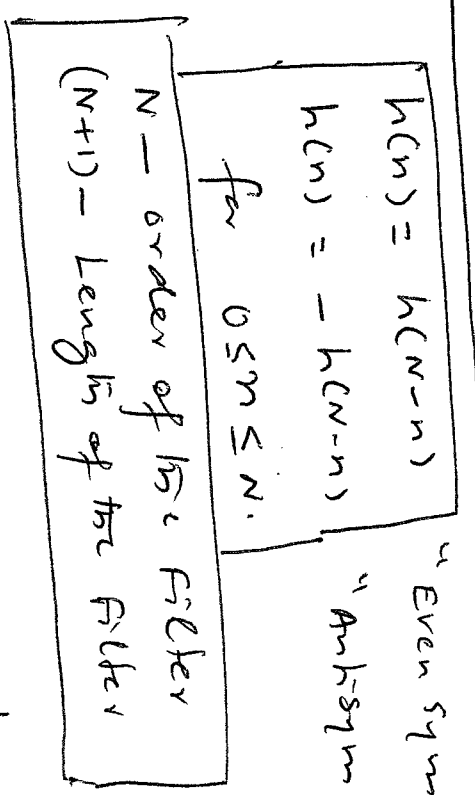 h(n) = h(N-n) " Even sym
h(n) = - h(N-n) " Antisym
for 0≤n≤N.
N - order of the filter
(N+1) - Length of the filter